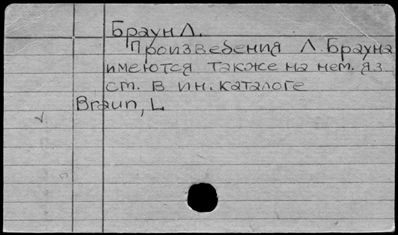 Браун Л.
Произведения Л Брауна
имеются также на нем. яз.
см. в ин. каталоге
Braun, L